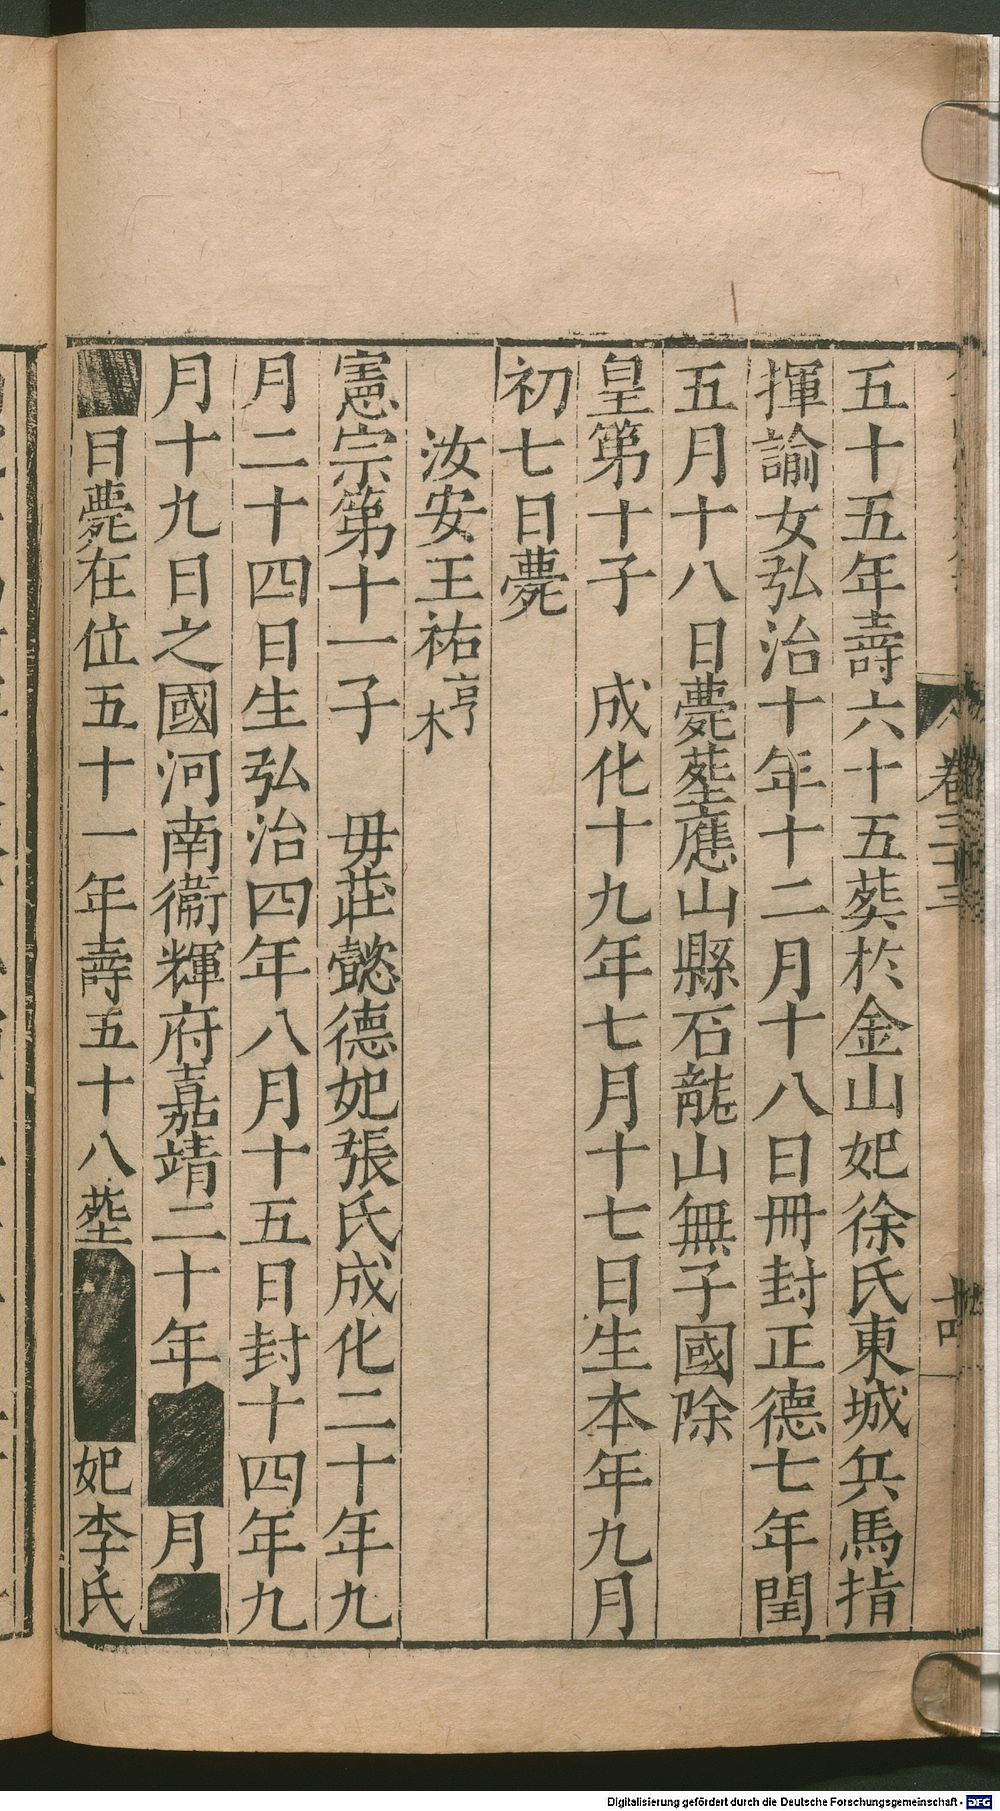 五十五年壽六十五葬於金山妃徐氏東城兵馬指
揮諭女弘治十年十二月十八日冊封正德七年閏
五月十八日薨塟應山縣石龍山無子國除
皇第十子　成化十九年七月十七日生本年九月
初七日薨
汝安王祐亨木
憲宗第十一子　毋莊懿德妃張氏成化二十年九
月二十四日生弘治四年八月十五日封十四年九
月十九日之國河南衛輝府嘉靖二十年月
日薨在位五十一年壽五十八塟妃李氏
卷三十三
十四
Digitalisierung gefördert durch die Deutsche Forschungsgemeinschaft - DFG